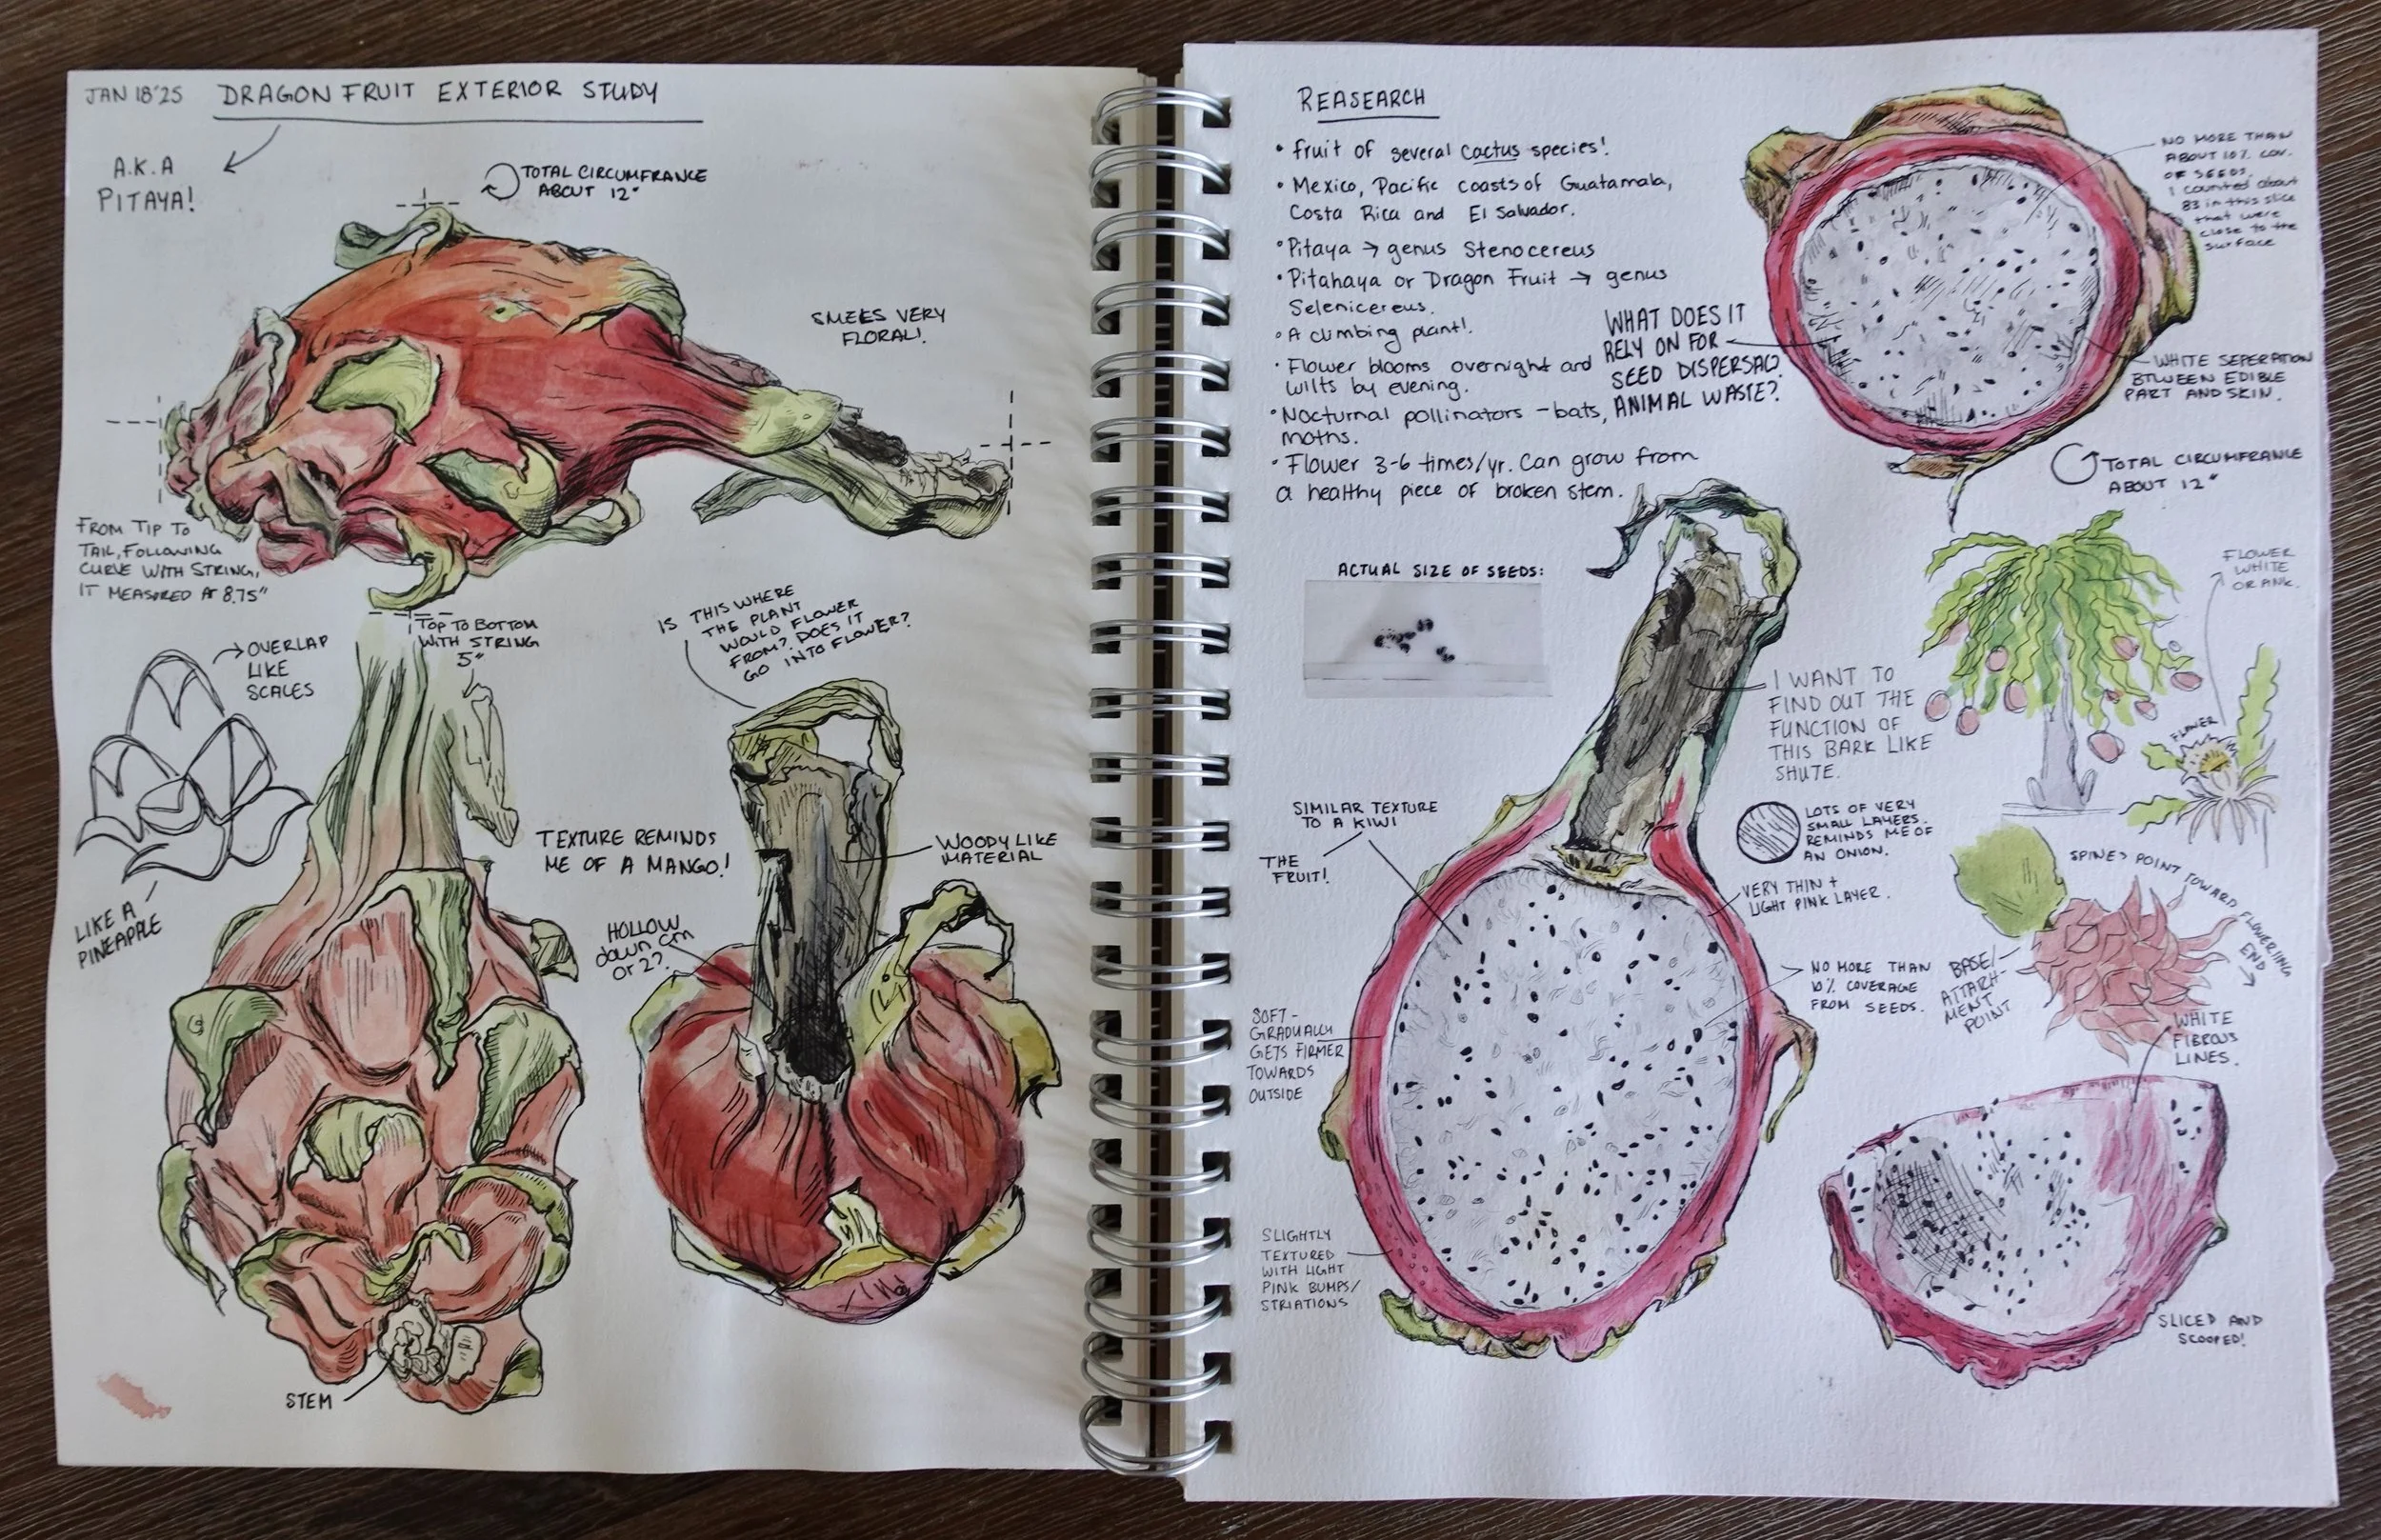 JAN 18'25 DRAGON FRUIT EXTERIOR STUDY
A.K.A
PITAYA!
TOTAL CIRCUMFRANCE
ABOUT 12"
SMELLS VERY
FLORAL!
FROM TIP TO
TAIL, FOLLOWING
CURVE WITH STRING,
IT MEASURED AT 8.75"
TOP TO BOTTOM
WITH STRING
5"
OVERLAP
LIKE
SCALES
LIKE A
PINEAPPLE
IS THIS WHERE
THE PLANT
WOULD FLOWER
FROM? DOES IT
GO INTO FLOWER?
TEXTURE REMINDS
ME OF A MANGO!
WOODY LIKE
MATERIAL
HOLLOW
down cm
or 2?
STEM
REASEARCH
• fruit of several Cactus species!
• Mexico, Pacific coasts of Guatamala,
Costa Rica and El Salvador.
• Pitaya → genus Stenocereus
• Pitahaya or Dragon Fruit → genus
Selenicereus.
• A climbing plant!
• Flower blooms overnight and
wilts by evening.
• Nocturnal pollinators - bats,
moths.
• Flower 3-6 times/yr. Can grow from
a healthy piece of broken stem.
WHAT DOES IT
RELY ON FOR
SEED DISPERSAL?
ANIMAL WASTE?
NO MORE THAN
ABOUT 10% COV.
OF SEEDS.
I counted about
83 in this slice
that were
close to the
surface
WHITE SEPERATION
BTWEEN EDIBLE
PART AND SKIN.
TOTAL CIRCUMFRANCE
ABOUT 12"
ACTUAL SIZE OF SEEDS:
I WANT TO
FIND OUT THE
FUNCTION OF
THIS BARK LIKE
SHUTE.
FLOWER
WHITE
OR PINK.
FLOWER
SIMILAR TEXTURE
TO A KIWI
THE
FRUIT!
LOTS OF VERY
SMALL LAYERS.
REMINDS ME OF
AN ONION.
VERY THIN +
LIGHT PINK LAYER.
SPINES POINT TOWARD FLOWERING
END
BASE/
ATTACH-
MENT
POINT
NO MORE THAN
10% COVERAGE
FROM SEEDS.
SOFT -
GRADUALLY
GETS FIRMER
TOWARDS
OUTSIDE
WHITE
FIBROUS
LINES.
SLIGHTLY
TEXTURED
WITH LIGHT
PINK BUMPS/
STRIATIONS
SLICED AND
SCOOPED!